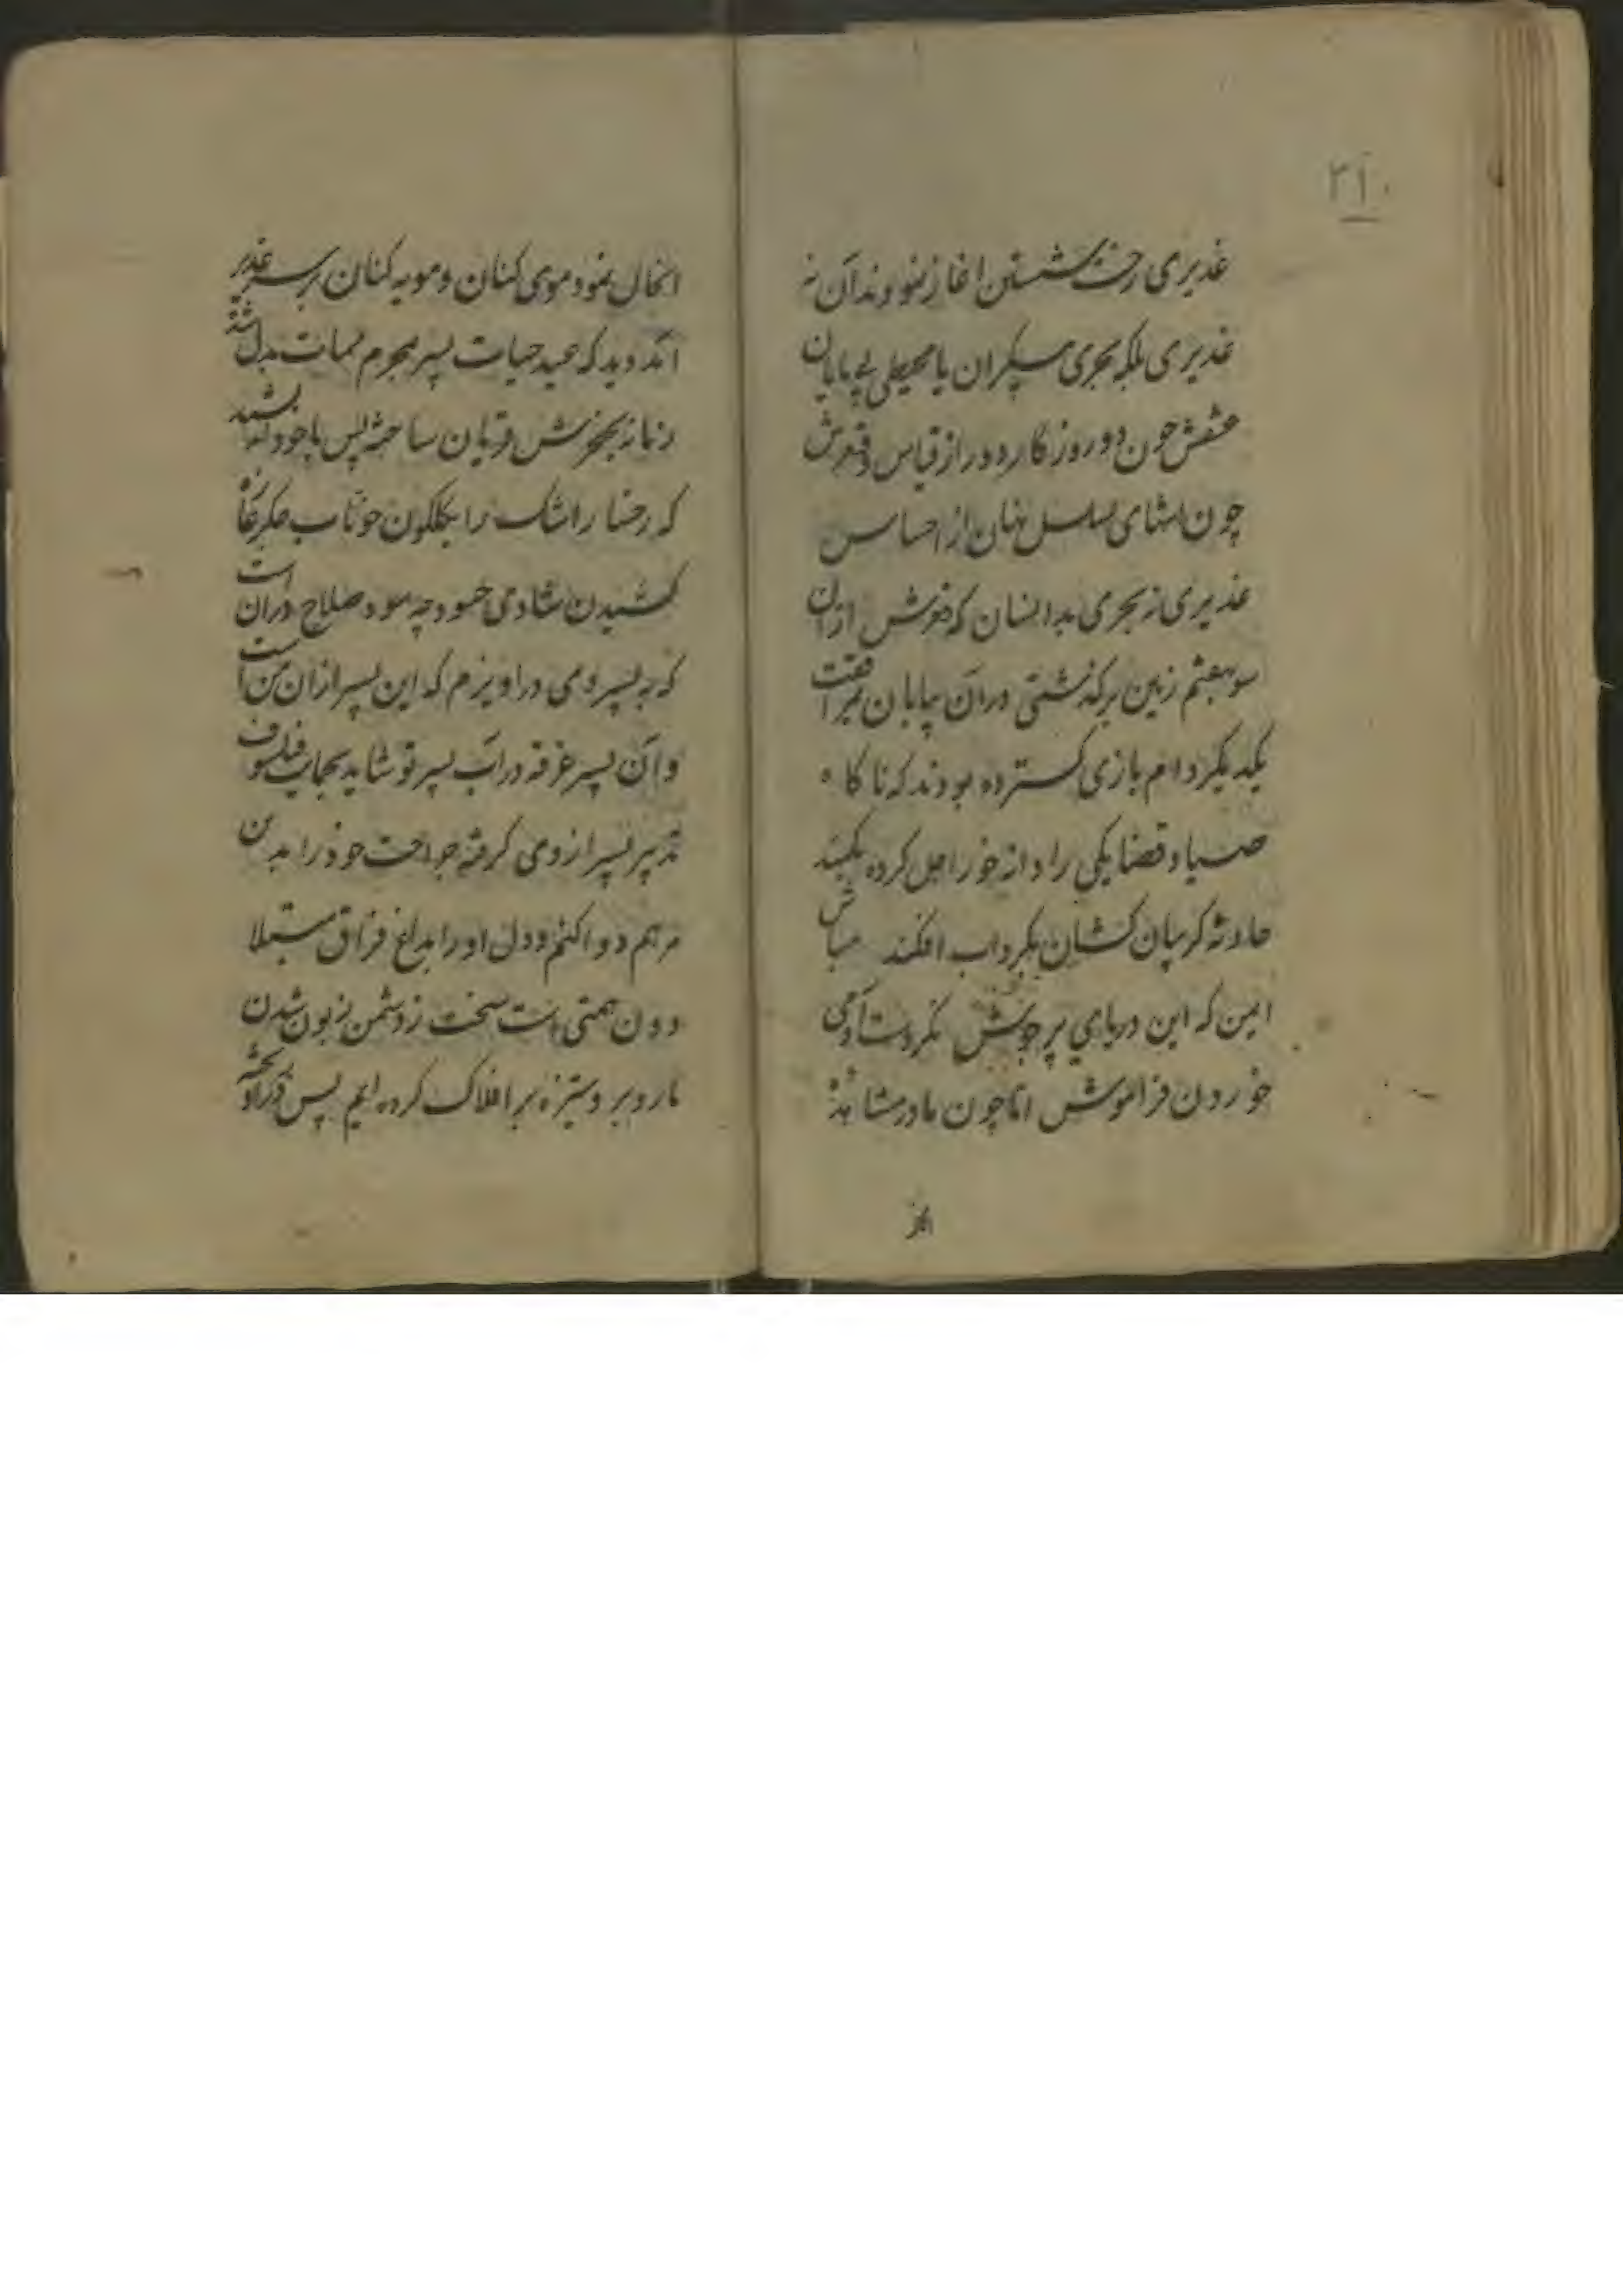 ۲۱۰
غدیری رخت شستن اغاز نمودند آن نه
غدیری بلکه بحری بیکران یا محیطی بی پایان
عمقش چون دور روزگار دور از قیاس و قعرش
چون انتهای تسلسل پنهان از احساس
غدیری نه بحری بدانسان که غوش ازان
سو بهفتم زمین برگذشتی دران بیابان
یکدیگر دام بازی گسترده بودند که ناگاه
صیاد قضا یکی را دانه خور اجل کرده بکمند
حادثه گریبان کشان بگرداب افکند مباش
ایمن که این دریای پر جوش نکردست آدمی
خوردن فراموش اما چون مادر مشاهده
انحال نمود موی کنان و مویه کنان بر سر غدیر
آمد دید که عید حیات پسر بمحرم ممات بدل شده
زمانه بخنجرش قربان ساخته پس با خود اندیشید
که رخسار اشک را بگلگون خوناب جگر
کشیدن شادی حسود چه سود صلاح دران است
که به پسر وی دراویزم که این پسر ازان من است
و آن پسر غرقه در آب پسر تو شاید بحمایت فیلسوف
تدبیر پسر از وی گرفته جراحت خود را بدین
مرهم دوا کنم و دل او را بداغ فراق مبتلا
دون همتی است سخت ز دشمن زبون شدن
ما روبرو ستیزه بر افلاک کرده ایم پس